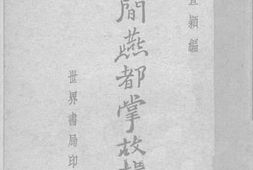 宣穎編
間燕都掌故
世界書局印